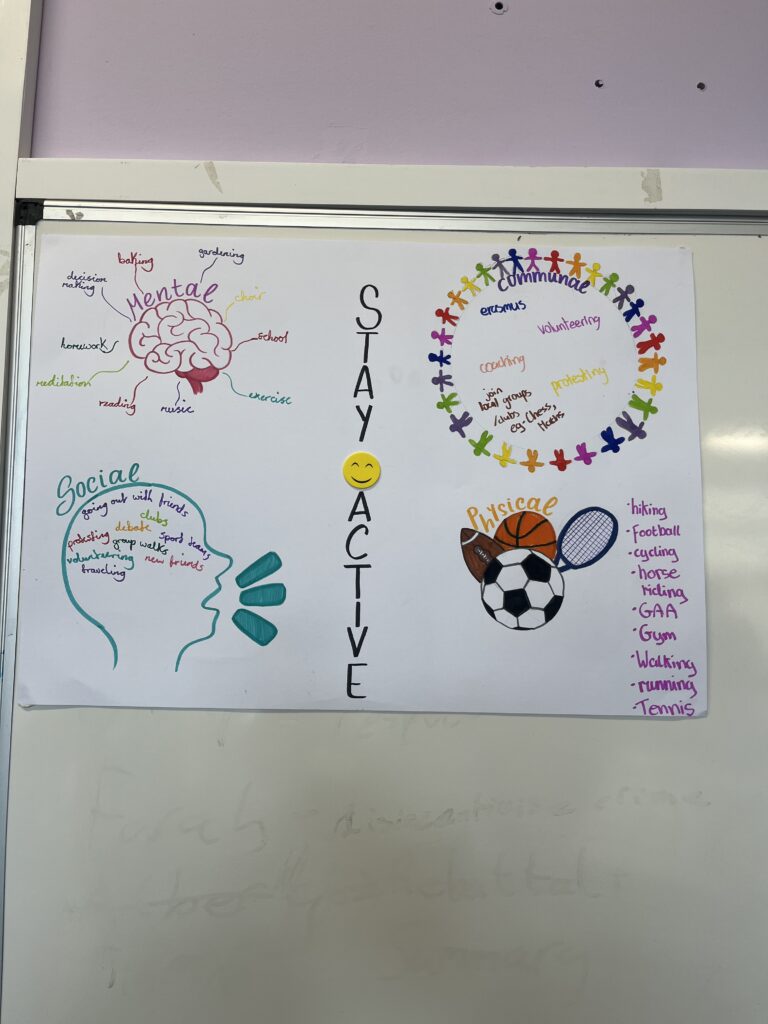 Mental
baking
gardening
decision
making
choir
homework
school
meditation
reading
music
exercise
STAY
ACTIVE
communal
erasmus
volunteering
coaching
protesting
join
local groups
/clubs
eg-Chess,
Maths
Social
going out with friends
clubs
debate
protesting group walks sport teams
volunteering new friends
traveling
Physical
·hiking
·Football
·cycling
·horse
riding
·GAA
·Gym
·Walking
·running
·Tennis
summary